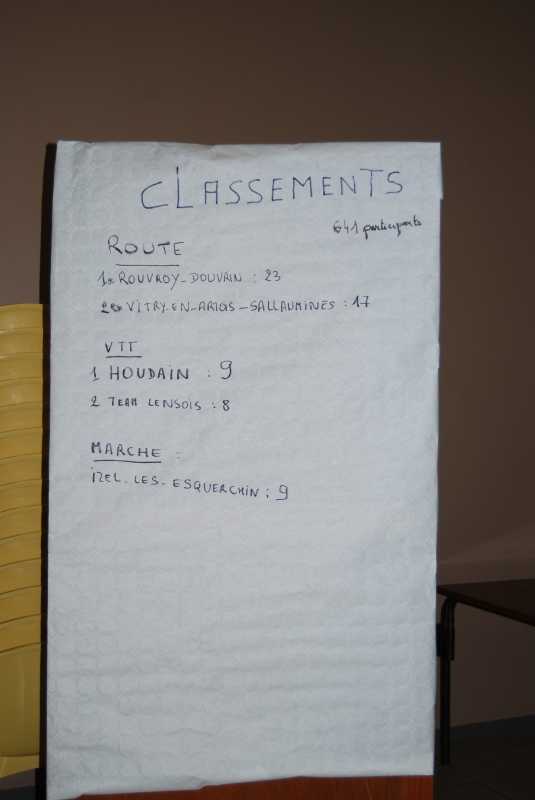 CLASSEMENTS
641 participants
ROUTE
1er ROUVROY_DOUVRIN : 23
2es VITRY.EN_ARTOIS_SALLAUMINES : 17
VTT
1 HOUDAIN : 9
2 TEAM LENSOIS : 8
MARCHE :
iZEL.LES.ESQUERCHIN : 9